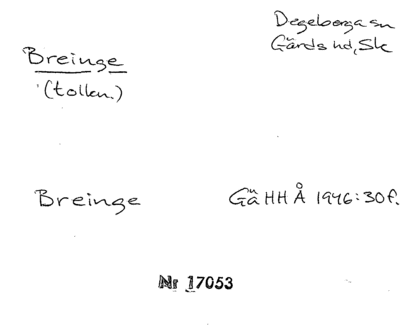 Degeberga sn
Gärds hd, Sk
Breinge
(tolkn.)
Breinge
Gä HH Å 1946:30f.
Nr 17053